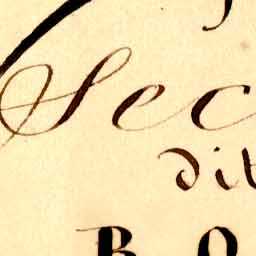 Sec
dit
B O